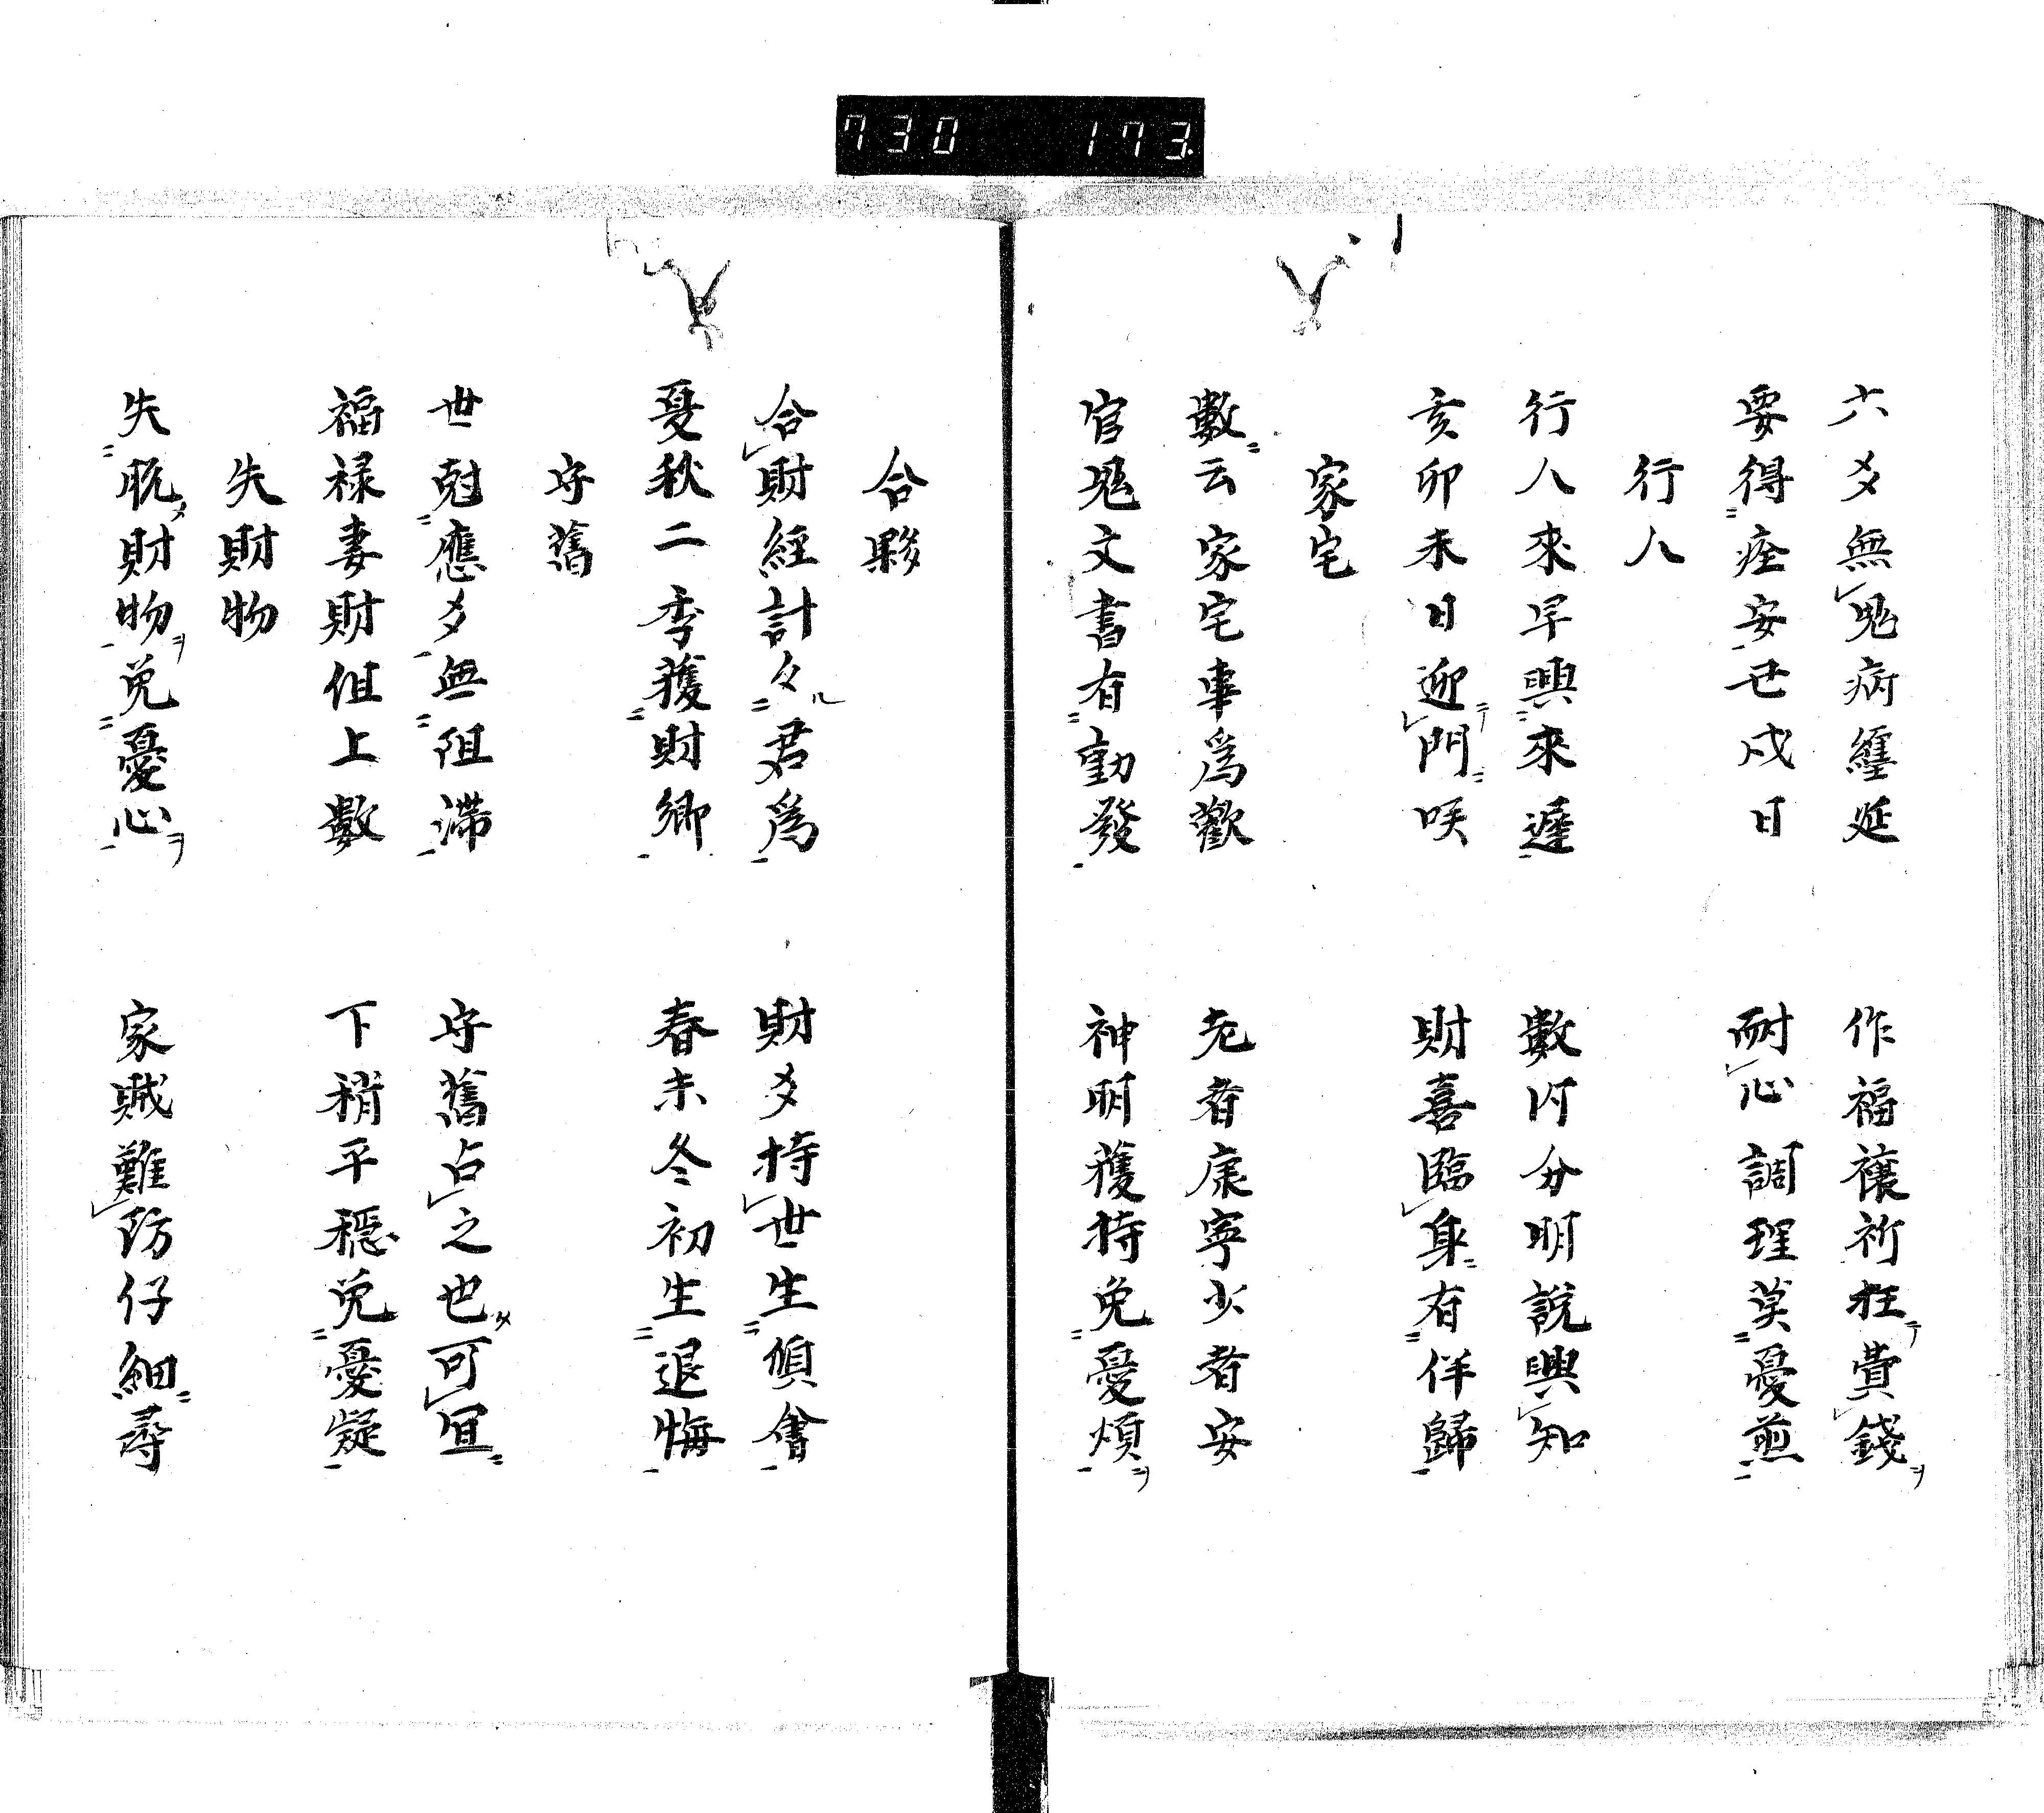 730 173
六爻無鬼病纏延 作福禳祈枉費錢
要得痊安已戌日 耐心調理莫憂煎
行人
行人來早與來遲 數內分明說與知
亥卯未日迎門咲 財喜臨身有伴歸
家宅
數云家宅事爲歡 老者康寧少者安
官鬼文書有動發 神明獲持免憂煩
合夥
合財經計々君爲 財爻持世生傎會
夏秋二季獲財鄉 春末冬初生退悔
守舊
世尅應爻無阻滯 守舊占之也可冝
福禄妻財俱上數 下稍平穩免憂疑
失財物
失脫財物免憂心 家賊難防仔細尋